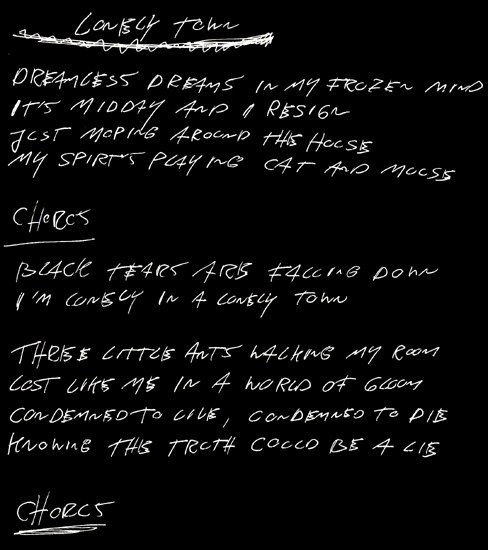 LONELY TOWN
DREAMLESS DREAMS IN MY FROZEN MIND
IT'S MIDDAY AND I RESIGN
JUST MOPING AROUND THE HOUSE
MY SPIRITS PLAYING CAT AND MOUSE
CHORUS
BLACK TEARS ARE FALLING DOWN
I'M LONELY IN A LONELY TOWN
THREE LITTLE ANTS WALKING MY ROOM
LOST LIKE ME IN A WORLD OF GLOOM
CONDEMNED TO LIVE, CONDEMNED TO DIE
KNOWING THE TRUTH COULD BE A LIE
CHORUS